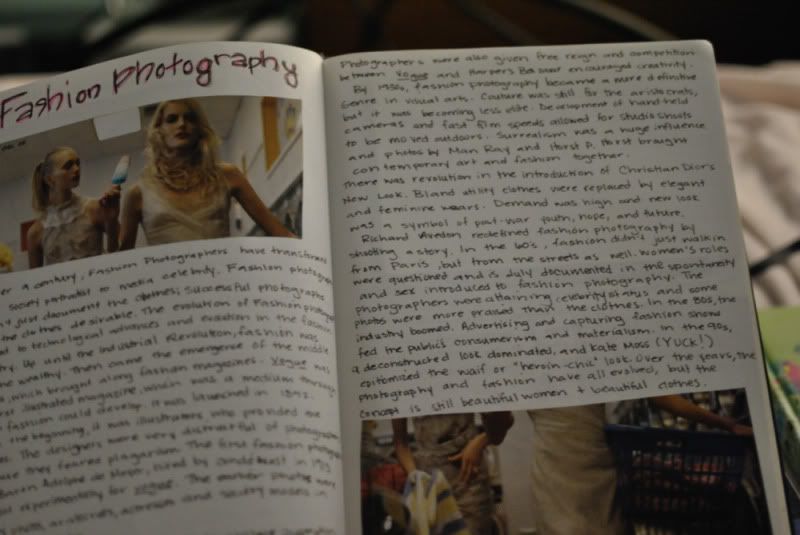 Fashion Photography
a century, Fashion Photographers have
society portraitist to media celebrity. Fashion
just document the clothes; successful photographs
the clothes desirable. The evolution of Fashion
to technological advances and evolution in the fashion
Up until the Industrial Revolution, fashion was
the wealthy. Then came the emergence of the middle
, which brought along fashion magazines. Vogue was
illustrated magazine, which was a medium through
fashion could develop. It was launched in 1892.
the beginning, it was illustrators who provided
The designers were very distrustful of photographs
they feared plagiarism. The first fashion
Baron Adolphe de Meyer, hired by Condé Nast in 1913
experimentally for Vogue. The earlier photos were
actresses and society models in
Photographers were also given free reign and competition
between Vogue and Harpers Bazaar encouraged creativity.
By 1930s, fashion photography became a more definitive
Genre in visual arts. Couture was still for the aristocrats,
but it was becoming less elite. Development of hand-held
cameras and fast film speeds allowed for studio shoots
to be moved outdoors. Surrealism was a huge influence
and photos by Man Ray and Horst P. Horst brought
contemporary art and fashion together.
There was revolution in the introduction of Christian Dior's
New Look. Bland utility clothes were replaced by elegant
and feminine wears. Demand was high and new look
was a symbol of post-war youth, hope, and future.
Richard Avedon redefined fashion photography by
shooting a story. In the 60's, fashion didn't just walk in
from Paris, but from the streets as well. Women's roles
were questioned and is duly documented in the spontaneity
and sex introduced to fashion photography. The
photographers were attaining celebrity status and some
photos were more praised than the clothes. In the 80s, the
industry boomed. Advertising and capturing fashion show
fed the public's consumerism and materialism. In the 90s,
a deconstructed look dominated, and Kate Moss (YUCK!)
epitomized the waif or "heroin-chic" look. Over the years, the
photography and fashion have all evolved, but the
concept is still beautiful women + beautiful clothes.